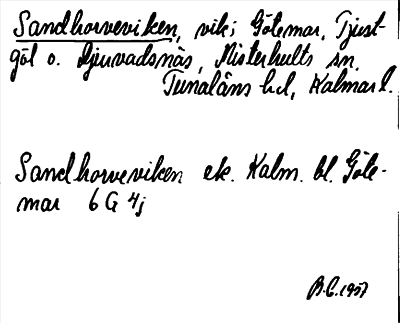 Sandhorveviken, vik i Götemar, Tjust-
göl o. Djuvadsnäs, Misterhults sn,
Tunaläns hd, Kalmar l.
Sandhorveviken ek. Kalm. bl. Göte-
mar 6G 4j
B.C. 1957